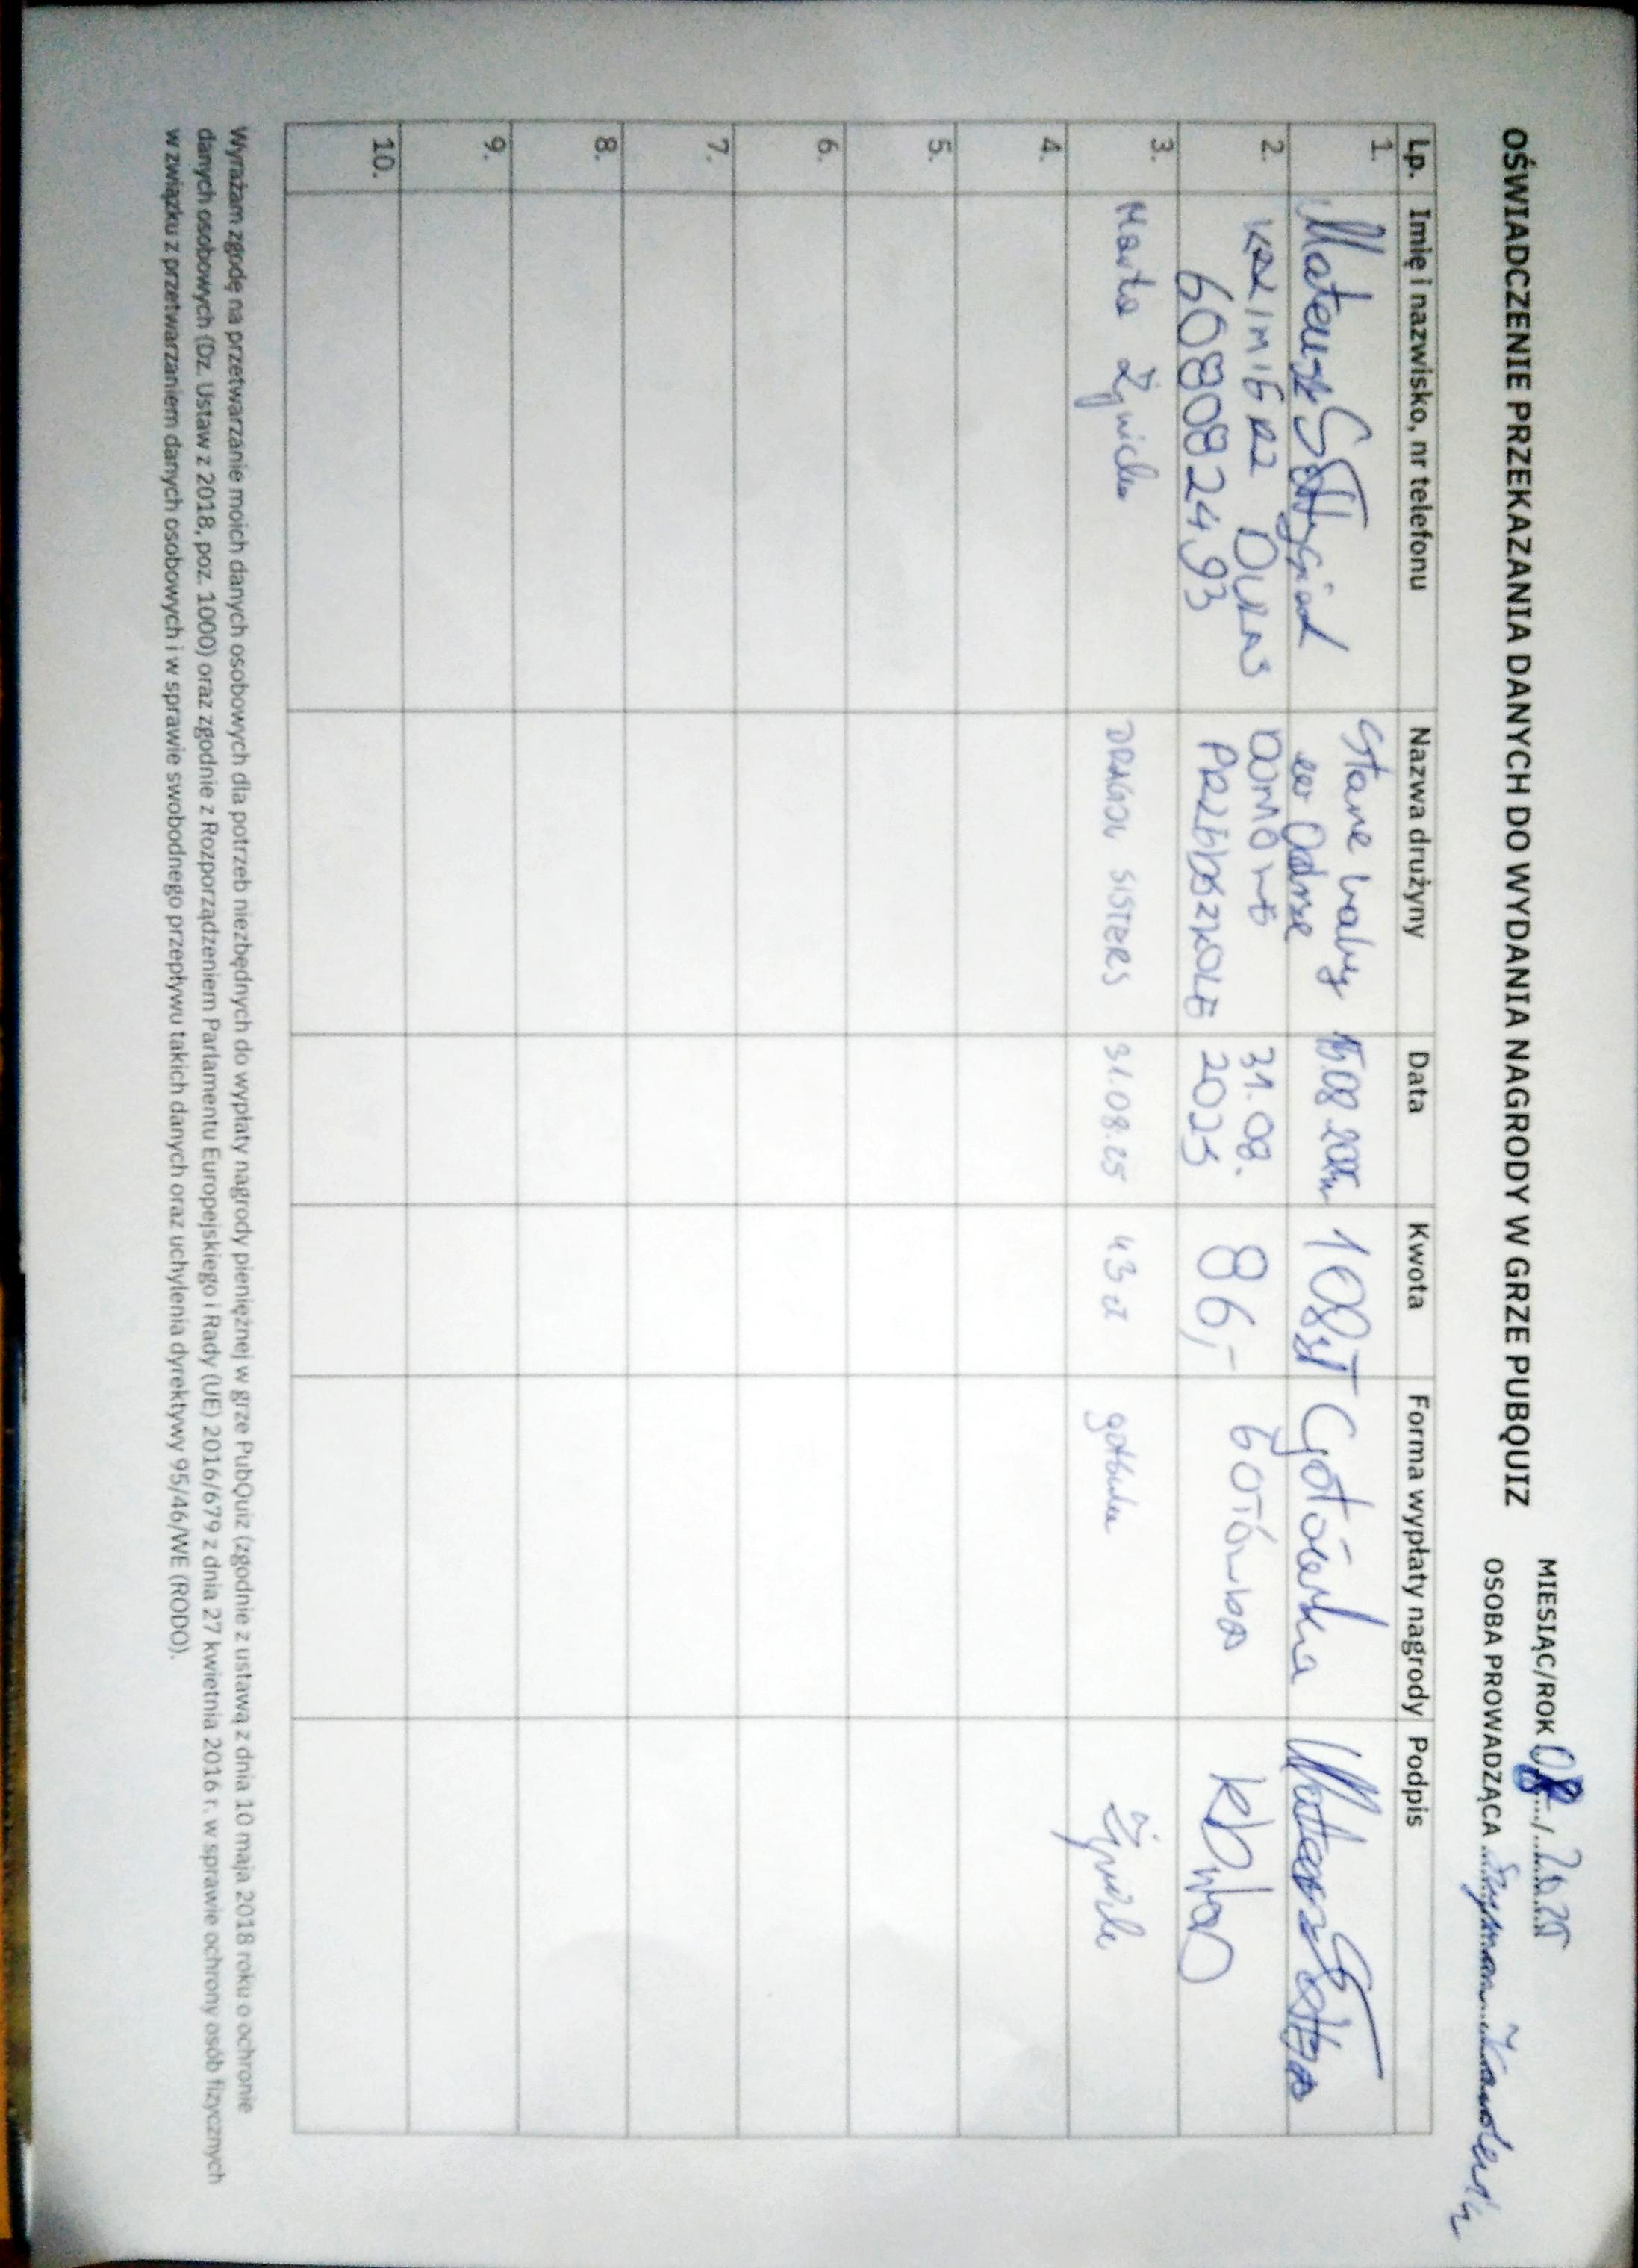 OŚWIADCZENIE PRZEKAZANIA DANYCH DO WYDANIA NAGRODY W GRZE PUBQUIZ
MIESIĄC/ROK 08 / 2025
OSOBA PROWADZĄCA Szymon
Lp. Imię i nazwisko, nr telefonu Nazwa drużyny Data Kwota Forma wypłaty nagrody Podpis
1. Mateusz Stare baby 15.08 2025 108zł Gotówka Mateusz
2. KAZIMIERZ DURAS DOMOWE 31.08. 86,- GOTÓWKA
608082493 PRZEDSZKOLE 2025
3. Marta DRAGON SISTERS 31.08.25 43 zł gotówka
4.
5.
6.
7.
8.
9.
10.
Wyrażam zgodę na przetwarzanie moich danych osobowych dla potrzeb niezbędnych do wypłaty nagrody pieniężnej w grze PubQuiz (zgodnie z ustawą z dnia 10 maja 2018 roku o ochronie
danych osobowych (Dz. Ustaw z 2018, poz. 1000) oraz zgodnie z Rozporządzeniem Parlamentu Europejskiego i Rady (UE) 2016/679 z dnia 27 kwietnia 2016 r. w sprawie ochrony osób fizycznych
w związku z przetwarzaniem danych osobowych i w sprawie swobodnego przepływu takich danych oraz uchylenia dyrektywy 95/46/WE (RODO).